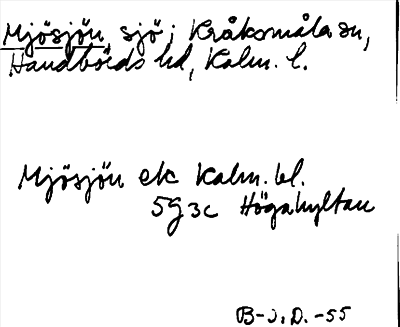 Mjösjön, sjö i Kråksmåla sn,
Handbörds hd, Kalm. l.
Mjösjön ek Kalm. bl.
5g3c Högahyltan
B-J. D. -55